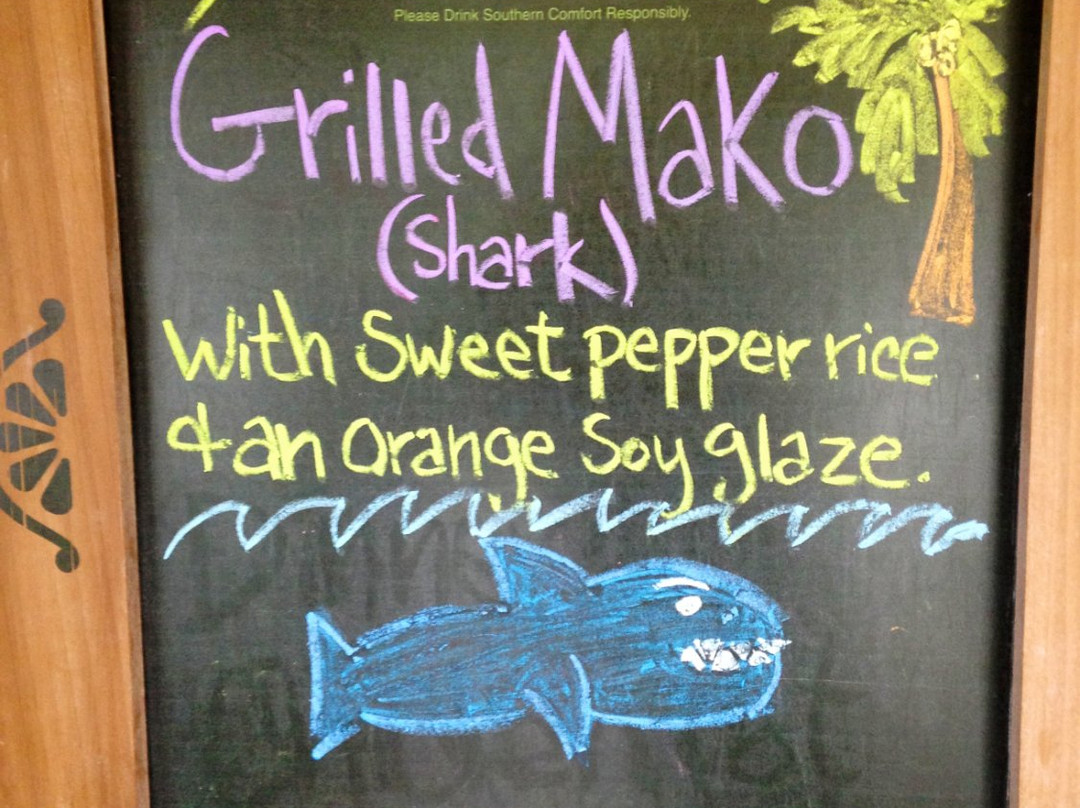 Please Drink Southern Comfort Responsibly.
Grilled Mako
(Shark)
With Sweet pepper rice
& an Orange Soy glaze.